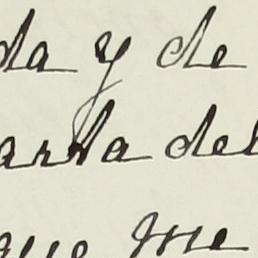 da y de
arta del
que me